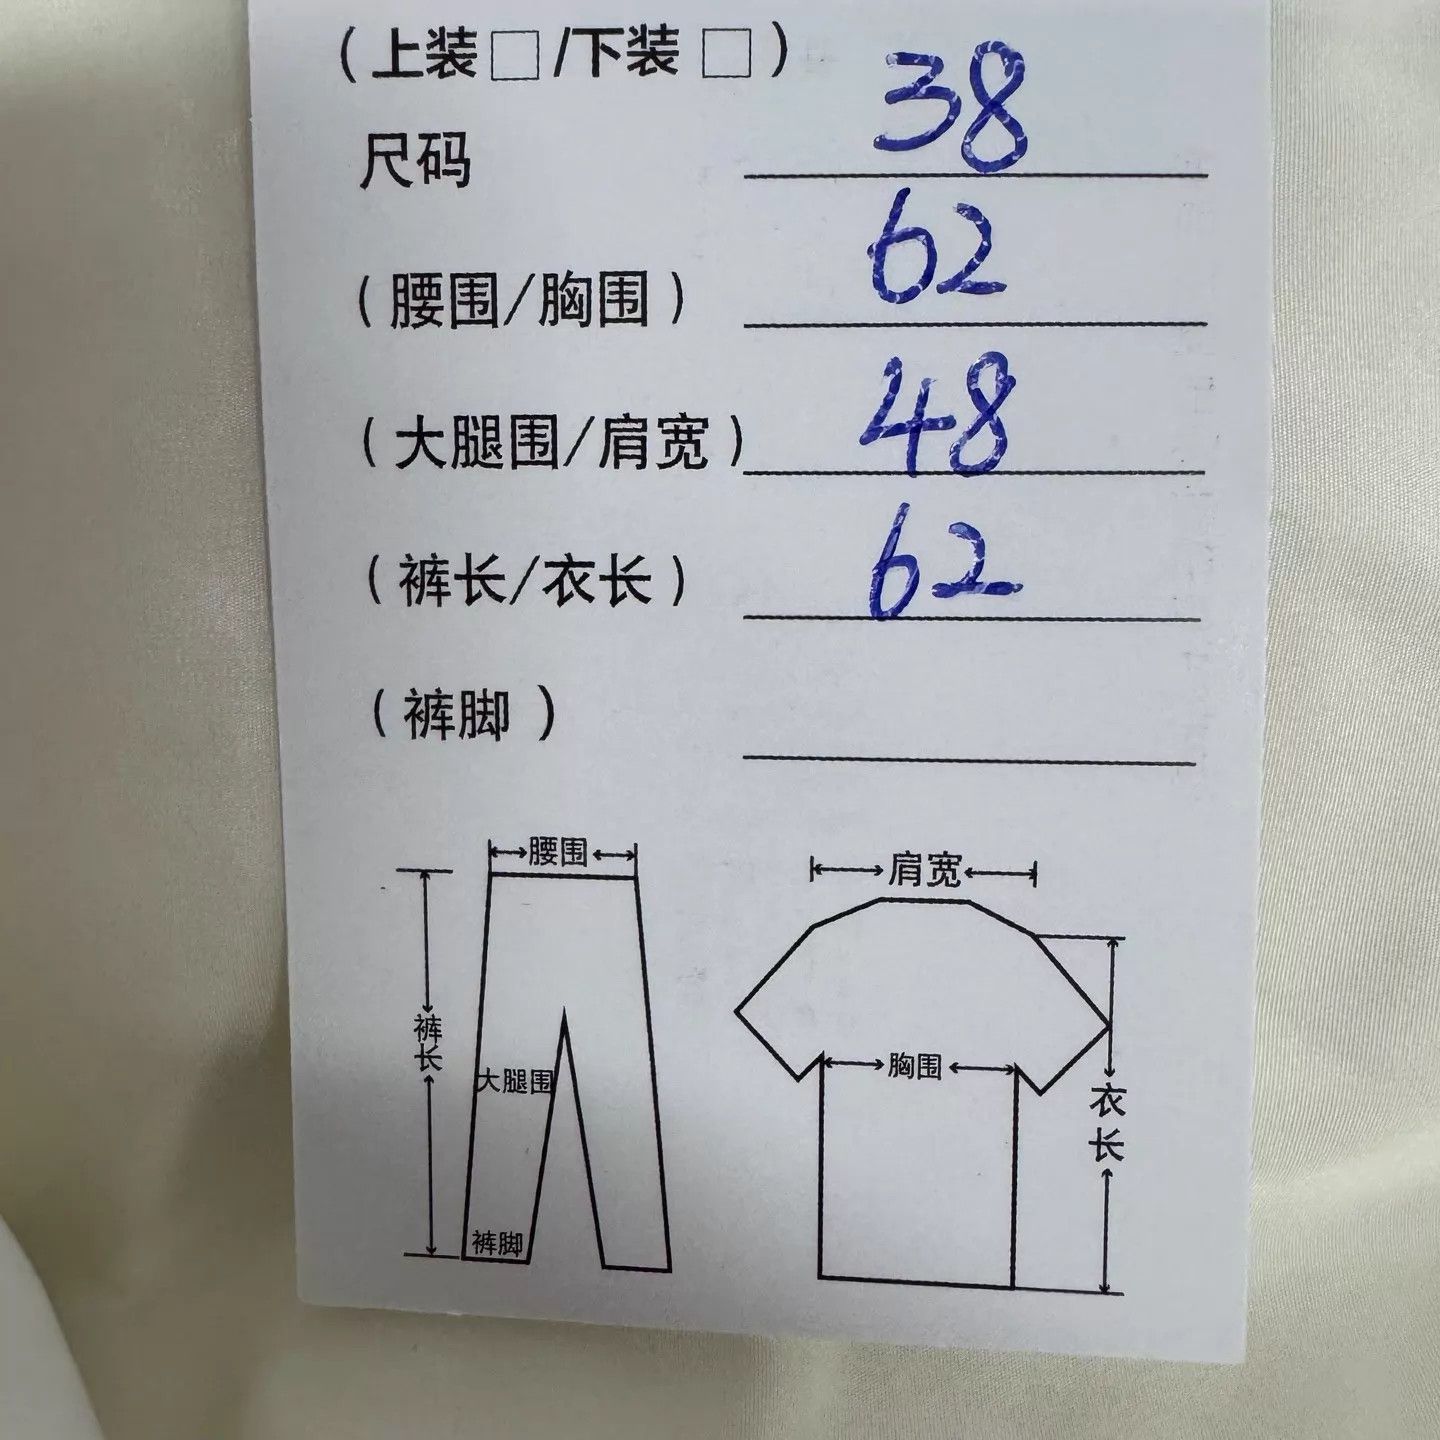 (上装□/下装□)
尺码 38
(腰围/胸围) 62
(大腿围/肩宽) 48
(裤长/衣长) 62
(裤脚)
腰围
肩宽
裤长
大腿围
胸围
衣长
裤脚